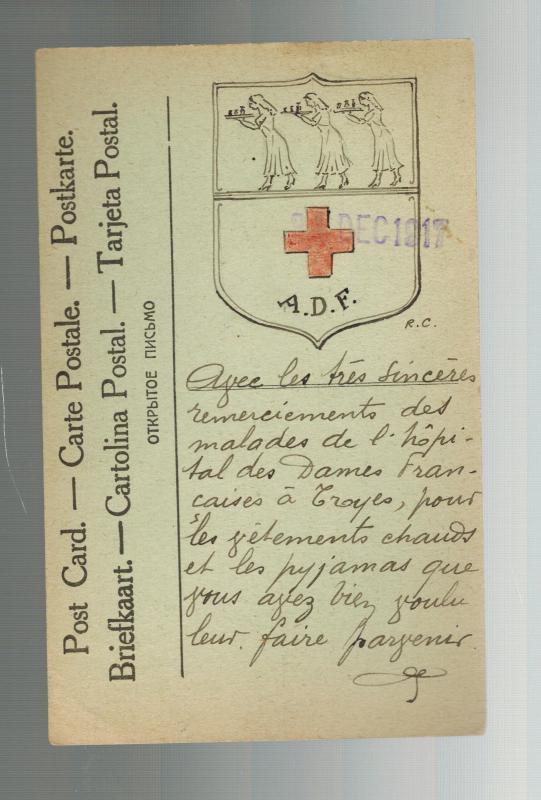 Post Card. — Carte Postale. — Postkarte.
Briefkaart. — Cartolina Postal. — Tarjeta Postal.
ОТКРЫТОЕ ПИСЬМО
DEC 1917
A.D.F.
R.C.
Avec les très sincères
remerciements des
malades de l'hôpi-
tal des Dames Fran-
çaises à Troyes, pour
les vêtements chauds
et les pyjamas que
vous avez bien voulu
leur faire parvenir